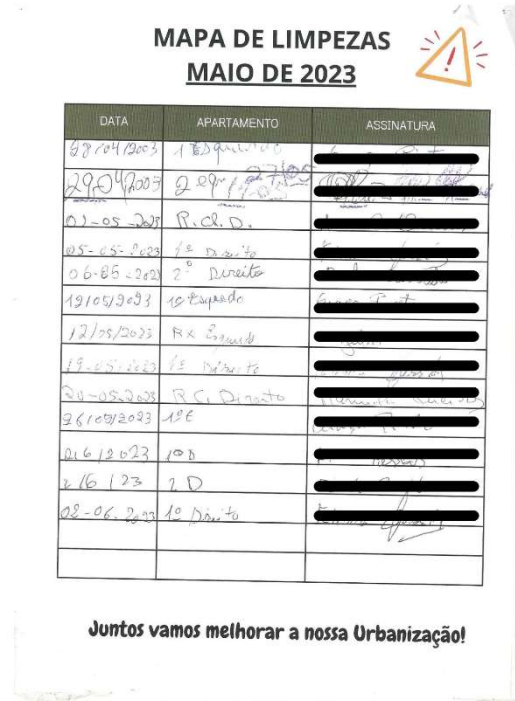 MAPA DE LIMPEZAS
MAIO DE 2023
DATA APARTAMENTO ASSINATURA
28/04/2003 1º Esquerdo
29/04/2003 2 27/05
02-05-2023 R.ch.D.
05-05-2023 1º Direito
06-05-2023 2º Direito
12/05/2023 1º Esquedo
12/05/2023 RX
19-05-2023 1º Direito
20-05-2023 R C. Direito
26/05/2023 1º E
2/6/2023
2/6/23 2 D
02-06-2023 1º Direito
Juntos vamos melhorar a nossa Urbanização!